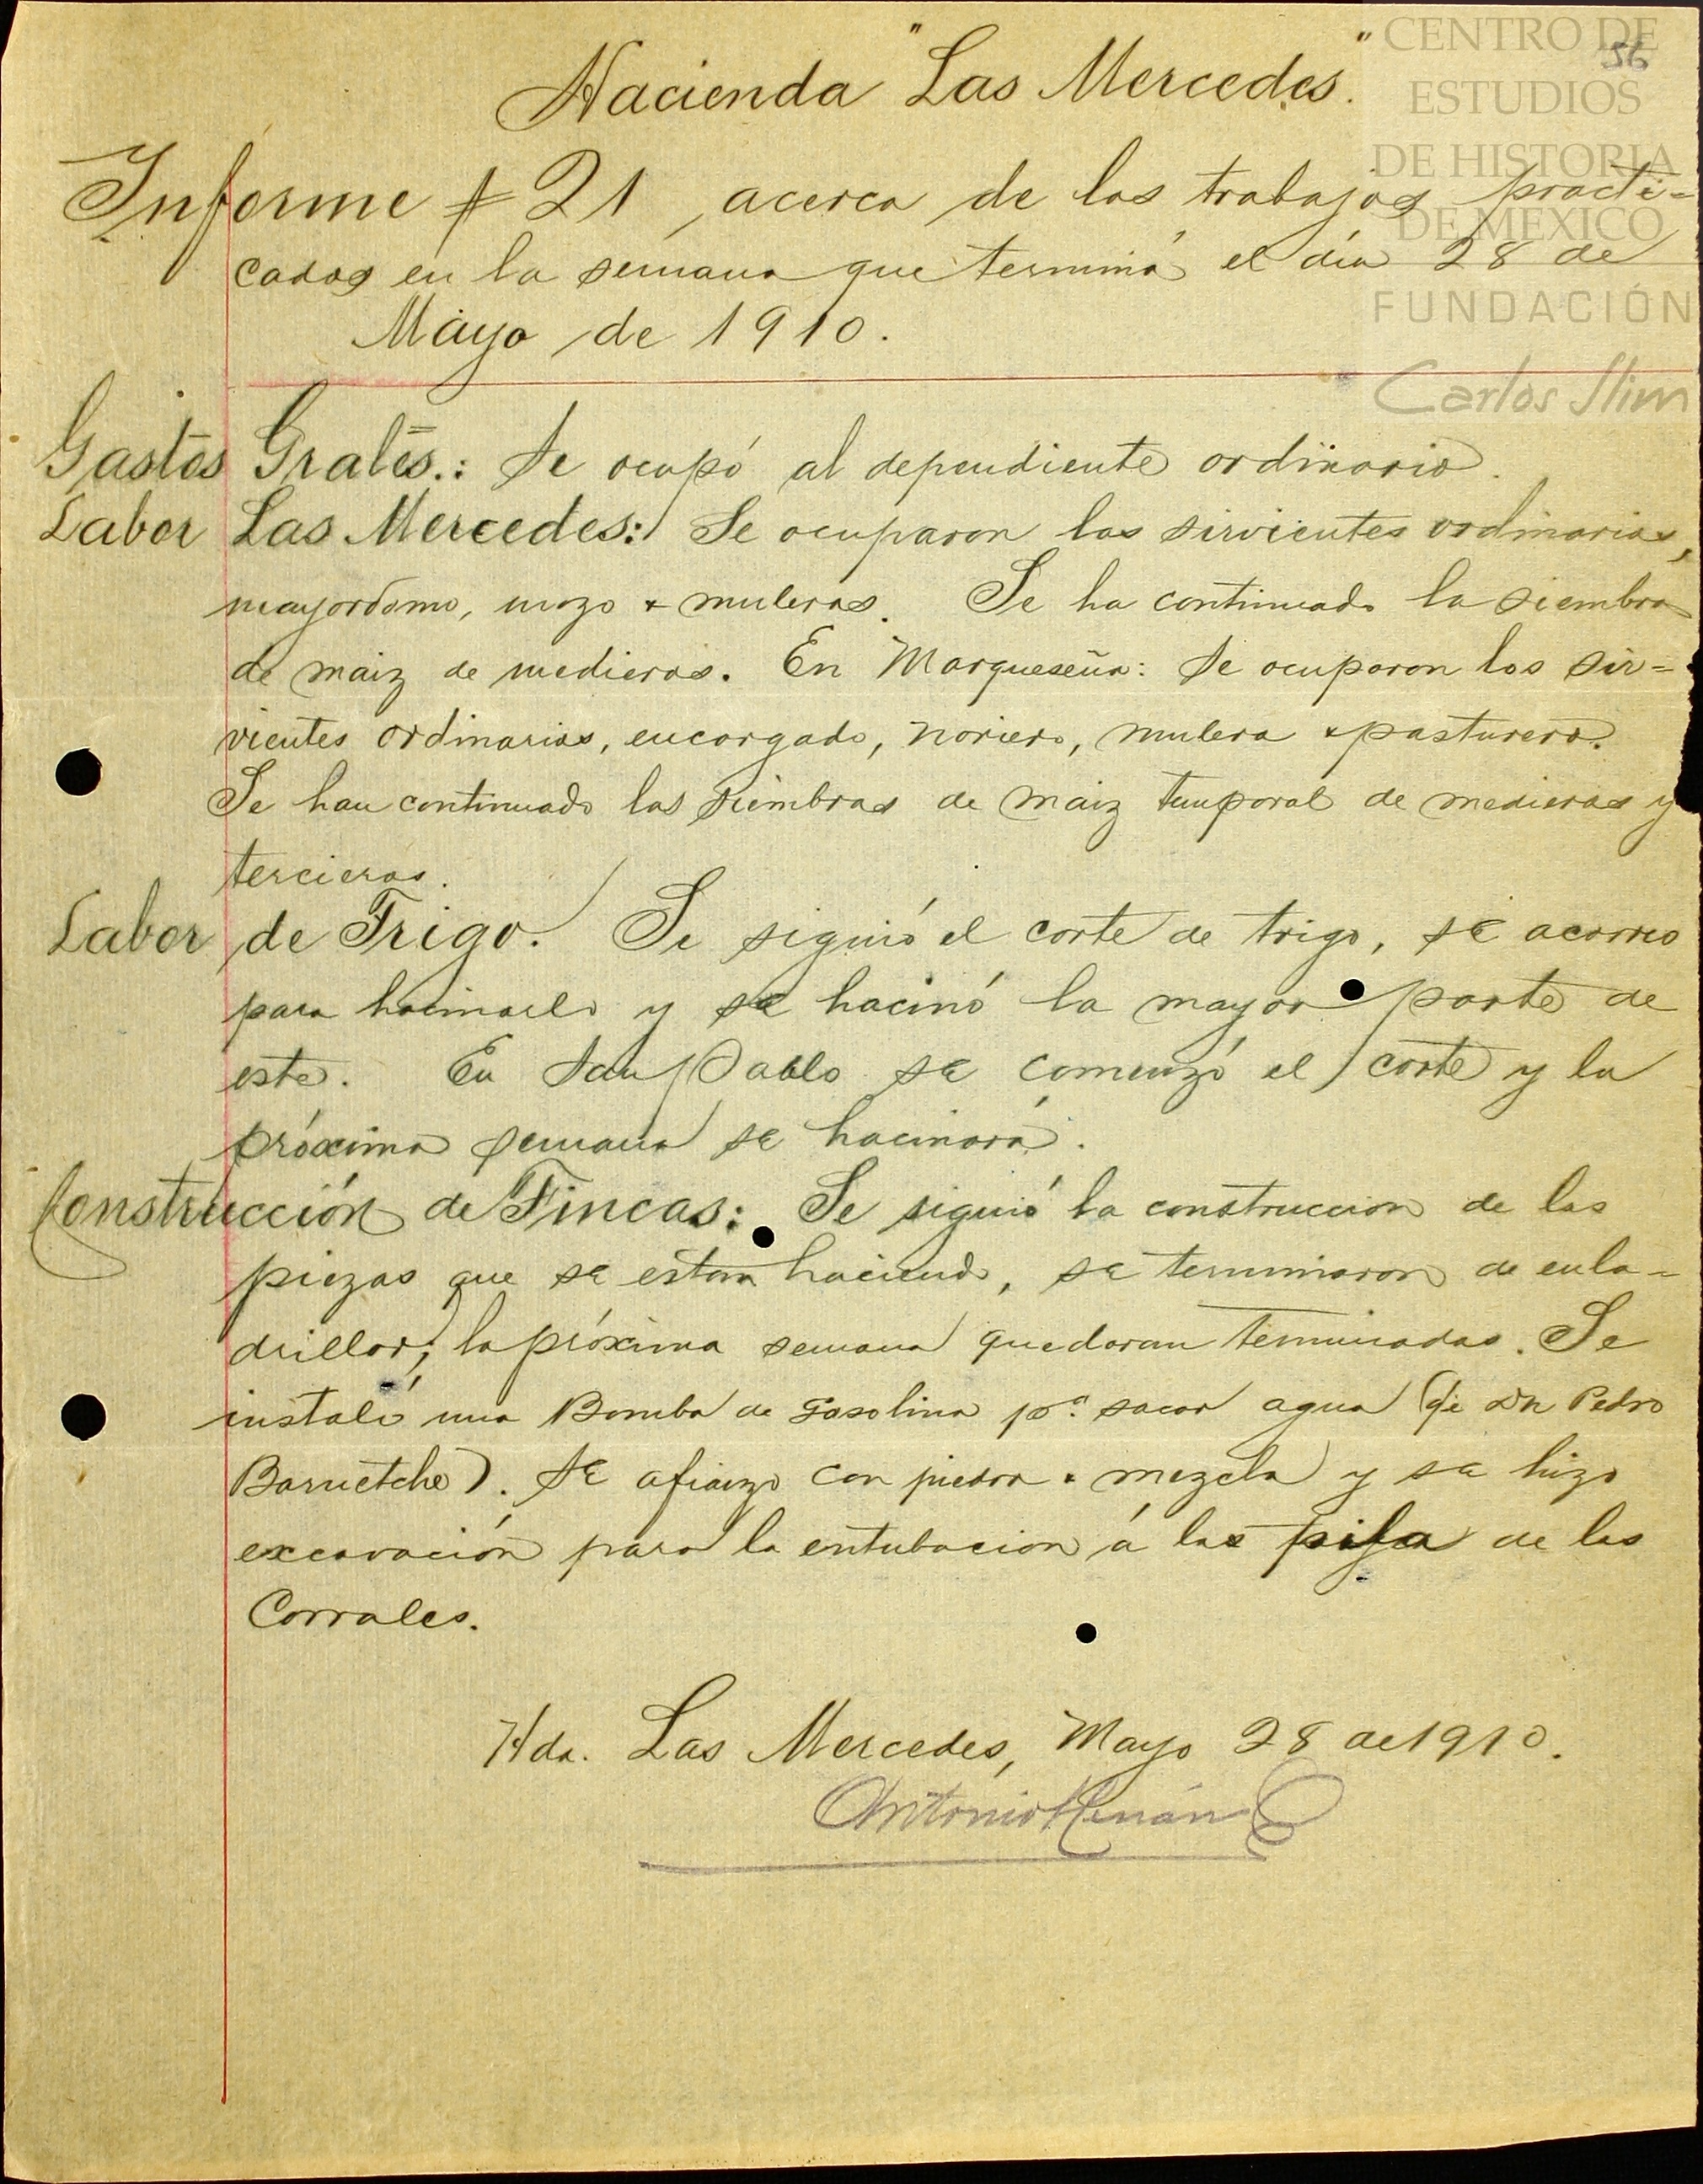 Hacienda "Las Mercedes."
56
CENTRO DE
ESTUDIOS
DE HISTORIA
DE MEXICO
FUNDACIÓN
Carlos Slim
Informe # 21, acerca de los trabajos practi=
cados en la semana que terminó el día 28 de
Mayo de 1910.
Gastos Grales.: Se ocupó al dependiente ordinario.
Labor Las Mercedes: Se ocuparon los sirvientes ordinarios,
mayordomo, mozo & muleros. Se ha continuado la siembra
de maiz de medieros. En Marqueseña: Se ocuparon los sir=
vientes ordinarios, encargado, noriero, mulero & pasturero.
Se han continuado las siembras de maiz temporal de medieros y
tercieros.
Labor de Trigo. Se siguió el corte de trigo, se acarreo
para hacinarlo y se hacinó la mayor parte de
este. En San Pablo se comenzó el corte y la
próxima semana se hacinará.
Construcción de Fincas: Se siguió la construccion de las
piezas que se estan haciendo, se terminaron de enla=
drillar; la próxima semana quedaran terminadas. Se
instaló una Bomba de Gasolina pa. sacar agua (de Dn Pedro
Barnetche). Se afianzo con piedra & mezcla y se hizo
excavación para la entubacion á la pila de los
Corrales.
Hda. Las Mercedes, Mayo 28 de 1910.
Antonio